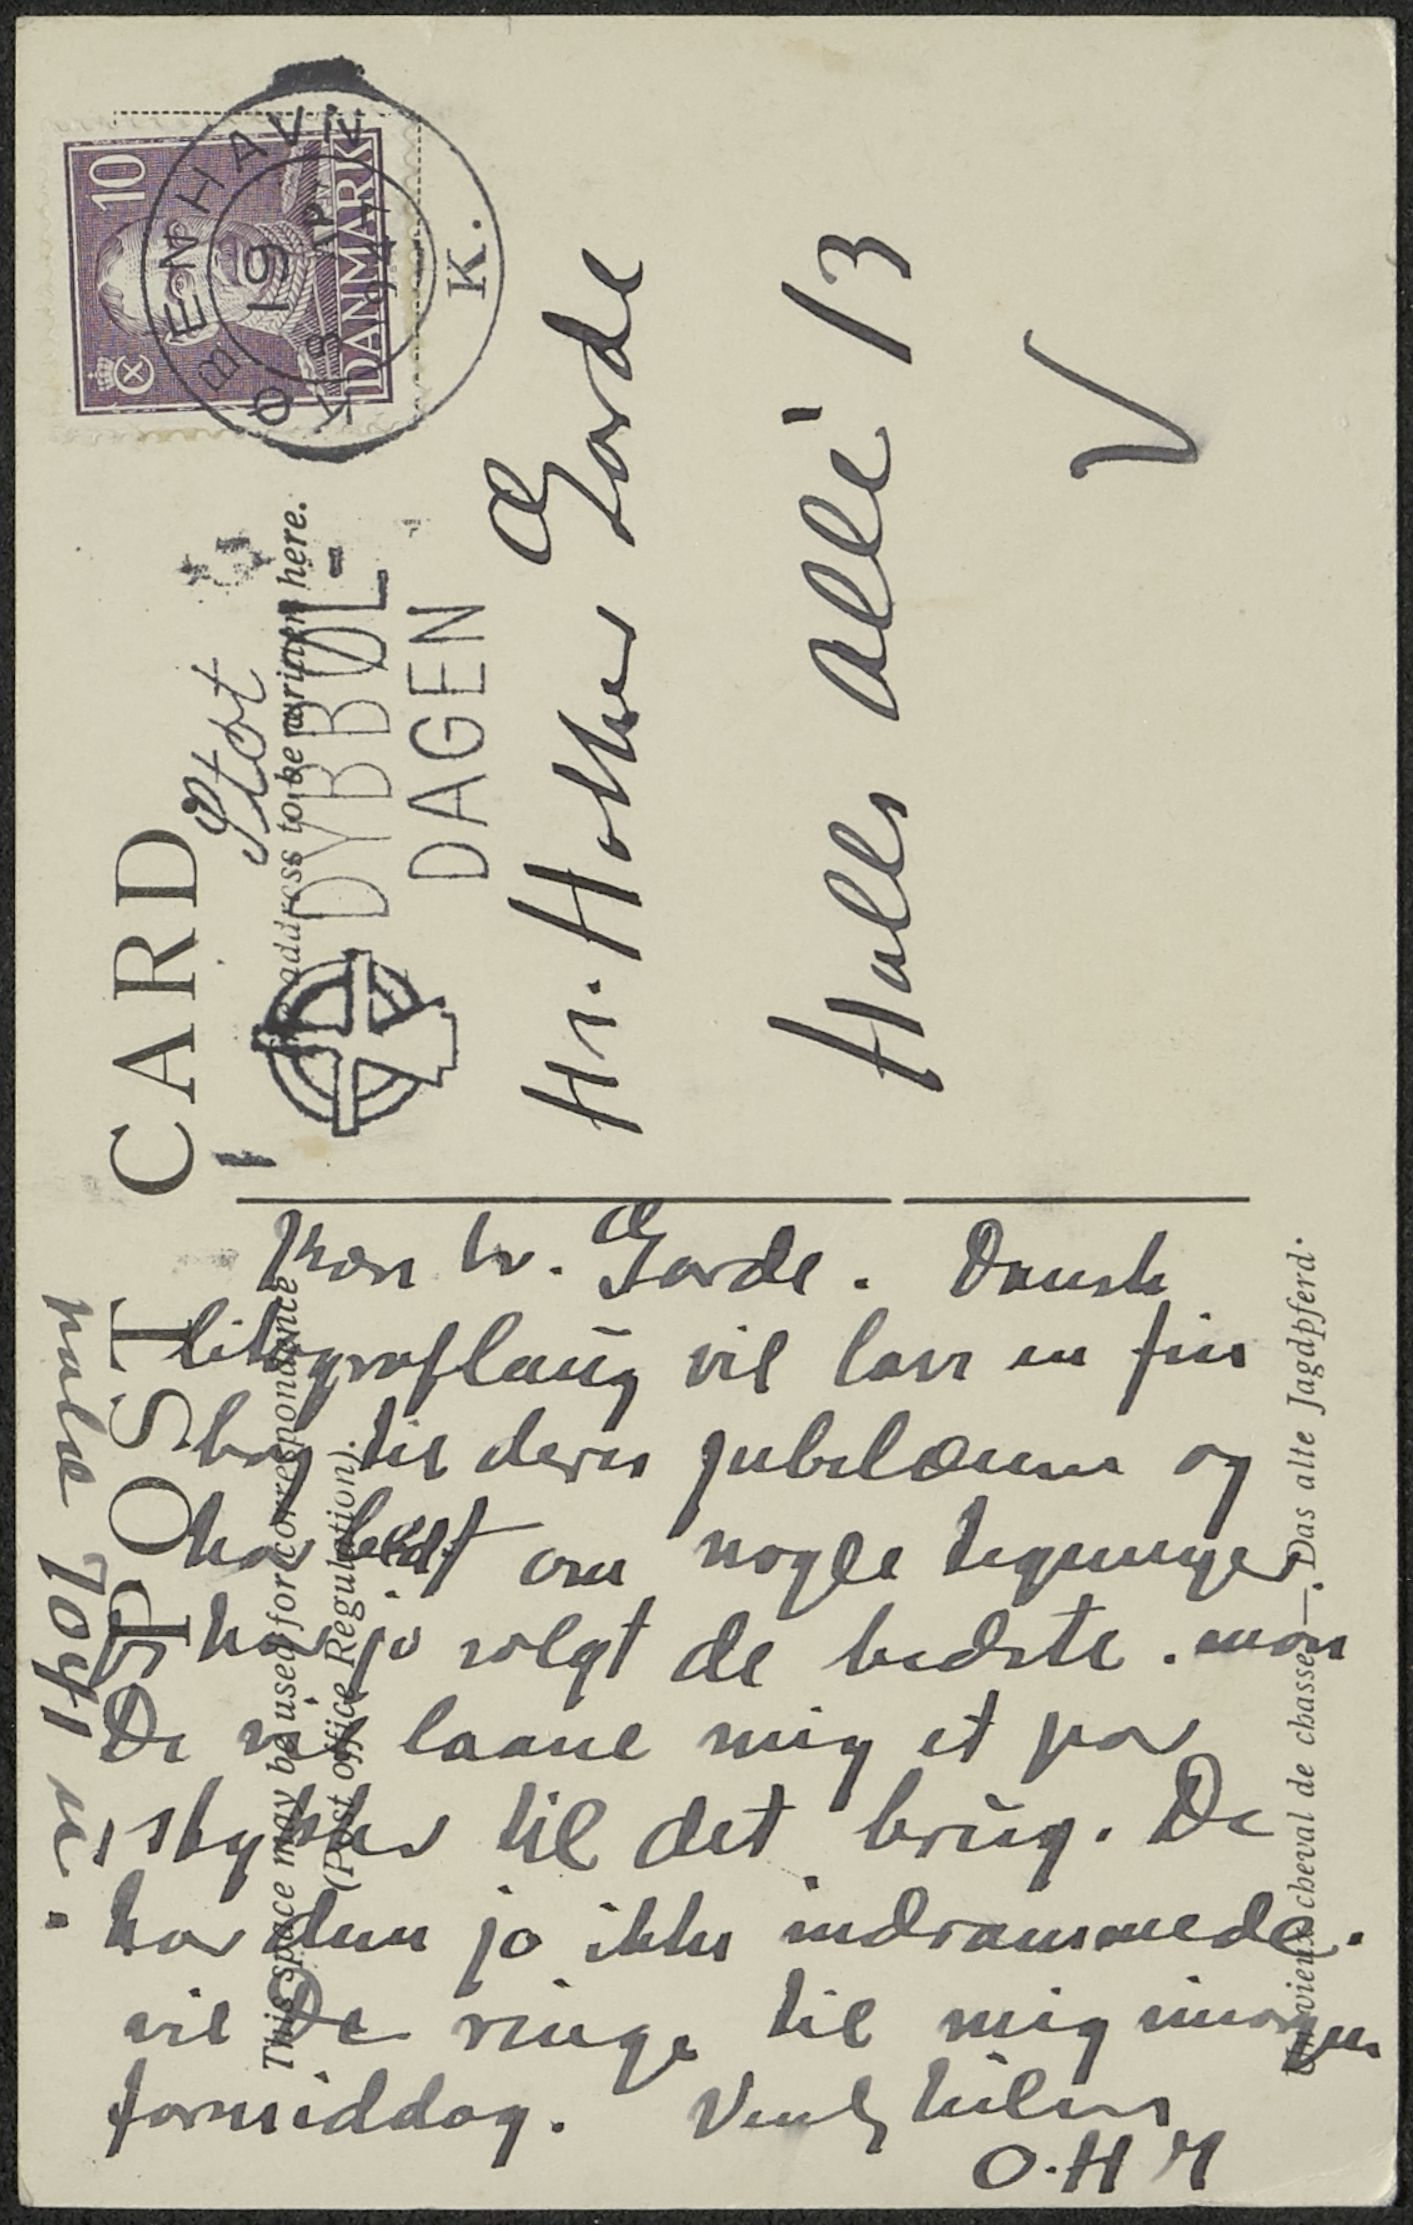 POST CARD
The address to be written here.
This space may be used for correspondence
(Post office Regulation).
KØBENHAVN
K.
19
8 AP
47
10
DANMARK
DYBBØL-
DAGEN
Støt
Hr. Holker Garde
Halls allé 13
V
Kære hr. Garde. Dansk
litograflaug vil lave en fin
bog til deres jubelæum og
har bedt om nogle tegninger
har jo solgt de bedste. mon
De vil laane mig et par
stykker til det brug. De
har dem jo ikke indrammede.
vil De ringe til mig imorgen
formiddag. Venlg hilsen
O.H M
palæ 7041
Un vieux cheval de chasse.—Das alte Jagdpferd.